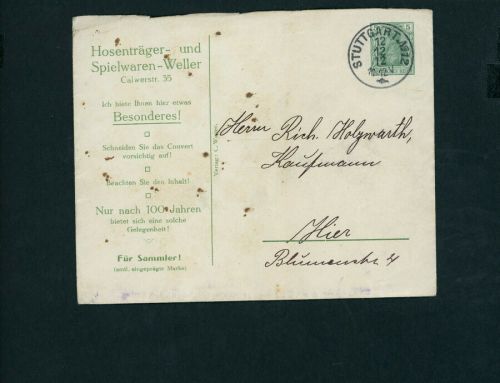 Hosenträger- und
Spielwaren-Weller
Calwerstr. 35
Ich biete Ihnen hier etwas
Besonderes!
Schneiden Sie das Couvert
vorsichtig auf!
Beachten Sie den Inhalt!
Nur nach 100 Jahren
bietet sich eine solche
Gelegenheit!
Für Sammler!
(amtl. eingeprägte Marke)
Verlag: C.
STUTTGART
12
12
12
5
Herrn Rich. Holzwarth,
Kaufmann
Hier
Blumenstr. 4